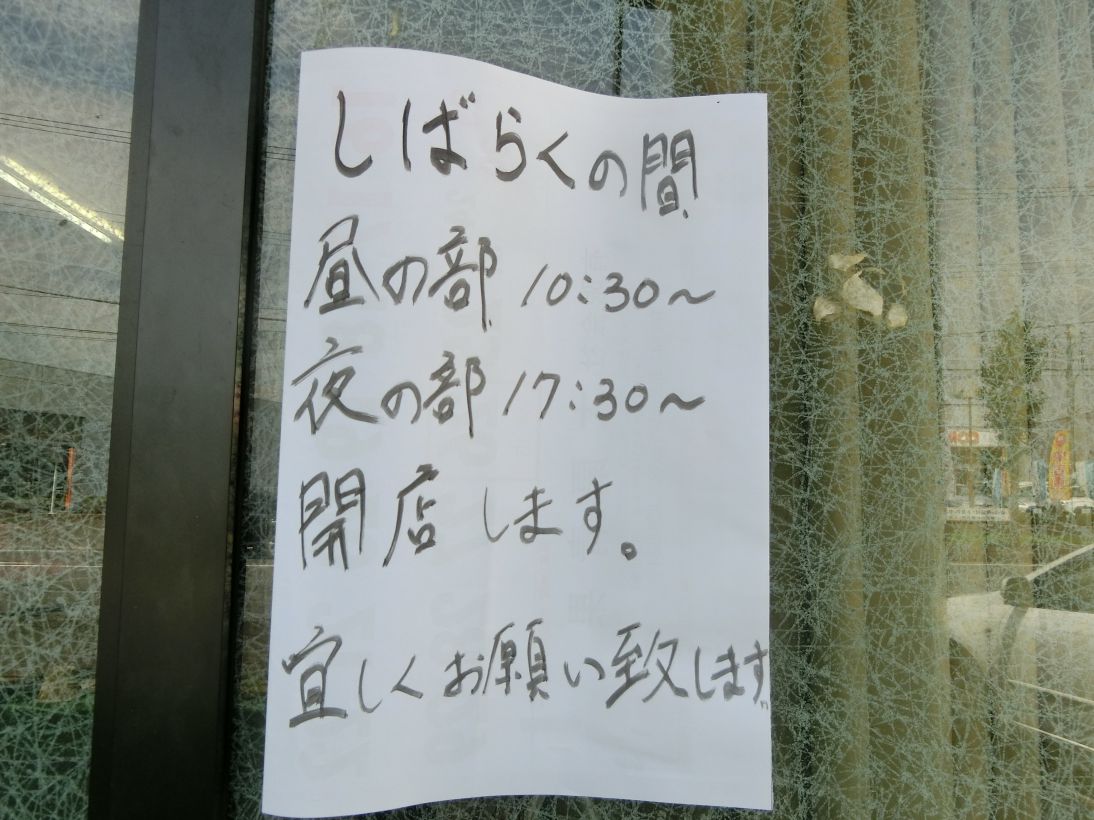 しばらくの間
昼の部 10:30～
夜の部 17:30～
開店します。
宜しくお願い致します。